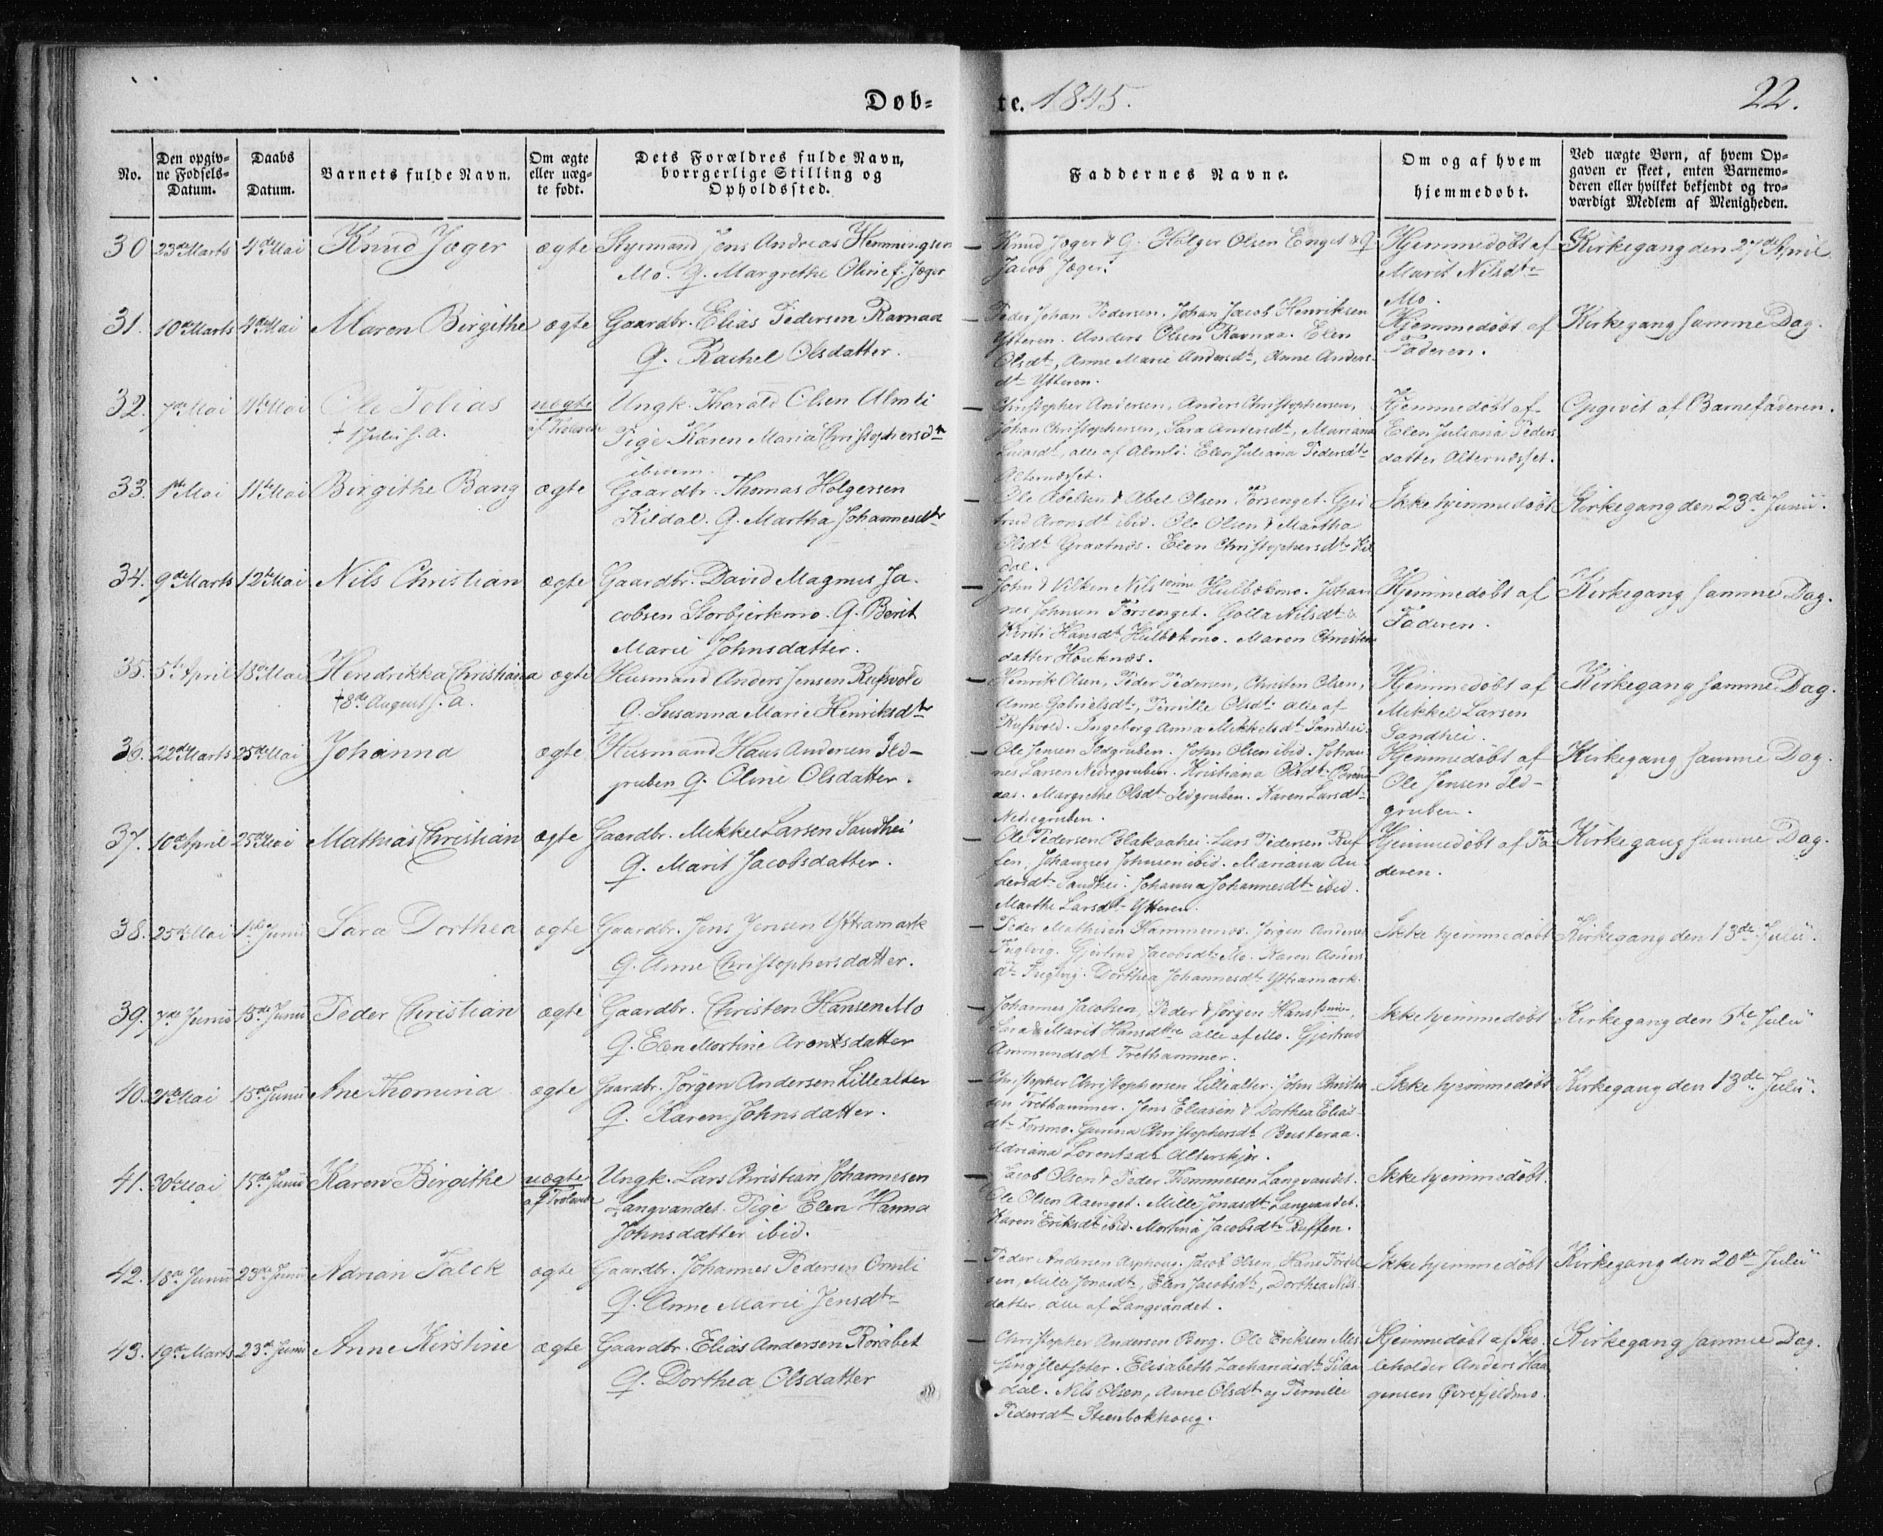 Døb-
te. 1845.
22.
No.
Den opgiv-
ne Fødsels-
Datum.
Daabs
Datum.
Barnets fulde Navn.
Om ægte
eller uæg-
te født.
Dets Forældres fulde Navn,
borrgerlige Stilling og
Opholdssted.
Faddernes Navne.
Om og af hvem
hjemmedøbt.
Ved uægte Børn, af hvem Op-
gaven er skeet, enten Barnemo-
deren eller hvilket bekjendt og tro-
værdigt Medlem af Menigheden.
30 23de Marts 4de Mai Knud Jæger ægte Styrmand Jens Andreas Hemmingsen
Mo. Q. Margrethe Oline f. Jæger
Knud Jæger & Q. Holger Olsen Enget & Q.
Jacob Jæger.
Hjemmedøbt af
Marit Nilsdtr
Mo.
Kirkegang den 27de April.
31. 10de Marts 4de Mai Maren Birgithe ægte Gaardbr. Elias Pedersen Ravnaa
Q. Rachel Olsdatter.
Peder Johan Pedersen, Johan Jacob Henriksen
Ytteren. Anders Olsen Ravnaa. Elen
Olsdt, Anne Marie Andersdt, Anne Anders-
dt Ytteren.
Hjemmedøbt af
Faderen.
Kirkegang samme Dag.
32. 7de Mai 11te Mai Ole Tobias uægte Ungk. Thorald Olsen Almli
† 1 Julii s. a.
Pige Karen Maria Christophersdtr
ibidem.
Christopher Andersen, Anders Christophersen,
Johan Christophersen, Sara Andersdt, Mariana
Larsdt, alle af Almli. Elen Juliana Pedersdtr
Alternæsset.
Hjemmedøbt af
Elen Juliana Peders-
datter Alternæsset.
Opgivet af Barnefaderen.
33. 1ste Mai 11te Mai Birgithe Bang ægte Gaardbr. Thomas Holgersen
Kildal. Q. Martha Johannesdtr
Ole Abelsen & Abel Olsen Forsenget. Gjer-
trud Aronsdt ibid. Ole Olsen & Martha
Olsdt Graatnæs. Elen Christophersdt Kil-
dal.
Ikke hjemmedøbt
Kirkegang den 23de Junii.
34. 9de Marts 12te Mai Nils Christian ægte Gaardbr. David Magnus Ja-
cobsen Storbjerkmo. Q. Berit
Marie Johnsdatter.
John & Vilken Nilssønne Hulbækmo. Johan-
nes Johnsen Forsenget. Golla Nilsdt &
Kirsti Hansdt Hulbækmo. Maren Christens-
datter Houknæs.
Hjemmedøbt af
Faderen.
Kirkegang samme Dag.
35. 5te April 18de Mai Hendrikka Christiana ægte Husmand Anders Jensen Rufsvold
† 8de August s. a.
Q. Susanna Marie Henriksdtr
Henrik Olsen, Peder Pedersen, Christen Olsen,
Anne Gabrielsdt, Pernille Olsdt alle af
Rufsvold. Ingeborg Anna Mikkelsdt Sandhei.
Hjemmedøbt af
Mikkel Larsen
Sandhei.
Kirkegang samme Dag.
36. 22de Marts 25de Mai Johanna ægte Husmand Hans Andersen Ild-
gruben Q. Oline Olsdatter.
Ole Jensen Ildgruben. John Olsen ibid. Johan-
nes Larsen Nedregruben. Kristiana Olsdt
Margrethe Olsdt Ildgruben. Karen Larsdt
Nedregruben.
Hjemmedøbt af
Ole Jensen Ild-
gruben.
Kirkegang samme Dag.
37. 10de April 25de Mai Mathias Christian ægte Gaardbr. Mikkel Larsen Sandhei
Q. Marit Jacobsdatter.
Ole Pedersen Blakaahei. Lars Pedersen Ruf-
fen, Johannes Johnsen ibid. Mariana An-
dersdt Sandhei. Johanna Johannesdt ibid.
Marthe Larsdt Ytteren.
Hjemmedøbt af Fa-
deren.
Kirkegang samme Dag.
38. 25de Mai 1ste Junii Sara Dorthea ægte Gaardbr. Jens Jensen Yttramark
Q. Anne Christophersdatter.
Peder Mathisen Hammernæs. Jørgen Andersen
Gjertrud Jacobsdt Mo. Karen
Dorthea Johannesdt Yttramark.
Ikke hjemmedøbt
Kirkegang den 13de Julii.
39. 7de Junii 15de Junii Peder Christian ægte Gaardbr. Christen Hansen Mo
Q. Elen Martine Aronsdatter
Johannes Jacobsen, Peder & Jørgen Hanssønne,
Sara & Marit Hansdtre alle af Mo. Gjertrud
Ammundsdt Frethammer.
Ikke hjemmedøbt
Kirkegang den 6te Julii
40. 21de Mai 15de Junii Ane Thomina ægte Gaardbr. Jørgen Andersen Lillealter
Q. Karen Johnsdatter.
Christopher Christophersen Lillealter. John Christen-
sen Frethammer. Jens Eliasen & Dorthea Elias-
dt Forsmo. Gurina Christophersdt Busteraa.
Adriana Lorentsdt Alterskjær.
Ikke hjemmedøbt
Kirkegang den 13de Julii.
41. 30te Mai 15de Junii Karen Birgithe uægte Ungk. Lars Christian Johannesen
Langvandet. Pige Elen Hanna
Johnsdatter ibid.
Jacob Olsen & Peder Thommesen Langvandet.
Ole Olsen Aaenget. Mille Jonasdt Langvandet.
Karen Eriksdt ibid. Martina Jacobsdt Ruffen.
Ikke hjemmedøbt.
42. 18de Junii 23de Junii Adrian Falck ægte Gaardbr. Johannes Pedersen Ormli
Q. Anne Marie Jensdtr
Peder Andersen Asphoug. Jacob Olsen, Hans
Mille Jonasdt, Elen Jacobsdt, Dorthea Nils-
datter, alle af Langvandet.
Ikke hjemmedøbt
Kirkegang den 20de Julii
43. 19de Marts 23de Junii Anne Kirstine ægte Gaardbr. Elias Andersen Rørabet
Q. Dorthea Olsdatter
Christopher Andersen Berg. Ole Eriksen Mes-
singsletfoter. Elisabeth Zachariasdt
dal. Nils Olsen, Anne Olsdt og Pernille
Pedersdt Steenbækhoug.
Hjemmedøbt af Sko-
leholder Anders Haa-
gensen Øvrefjeldmo.
Kirkegang samme Dag.